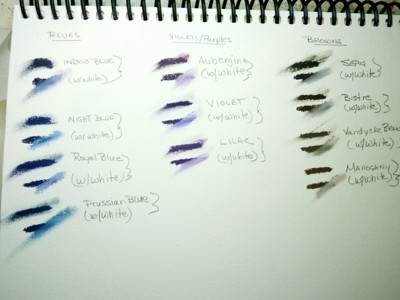 BLUES
INDIGO BLUE
(w/white)
NIGHT BLUE
(w/white)
Royal Blue
(w/white)
Prussian Blue
(w/white)
VIOLETS/Purples
Aubergine
(w/white)
VIOLET
(w/white)
LILAC
(w/white)
BROWNS
SEPIA
(w/white)
Bistre
(w/white)
Vandycke Brown
(w/white)
MAHOGANY
(w/white)